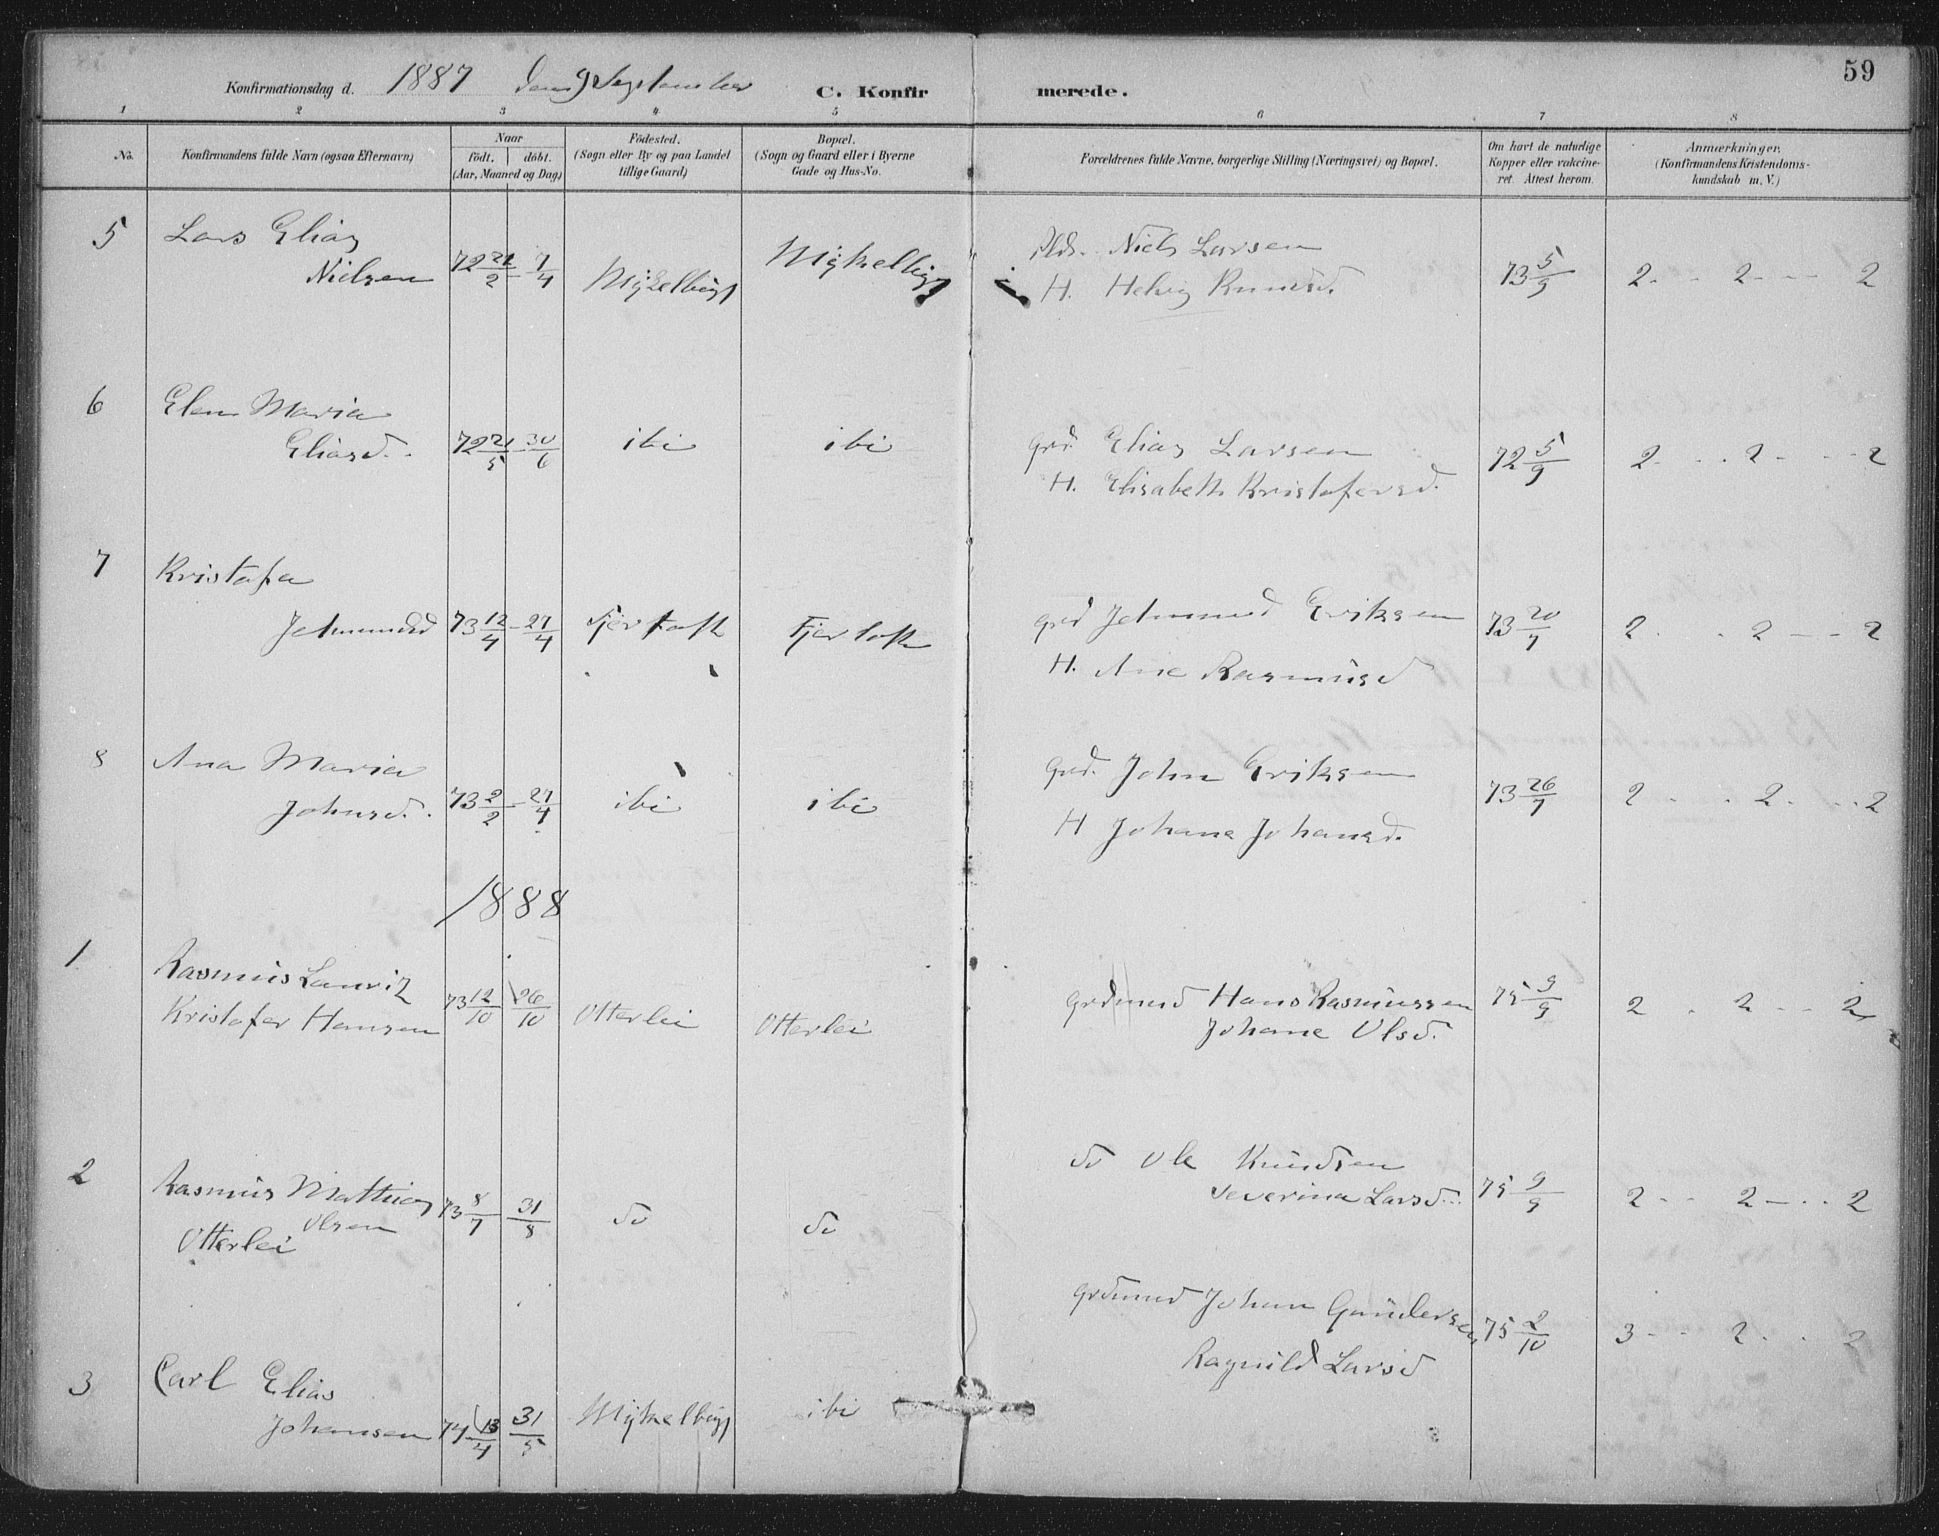 59
Konfirmationsdag d. 1887 den 9 September C. Konfirmerede.
1 2 3 4 5 6 7 8
No. Konfirmandens fulde Navn (ogsaa Efternavn) Naar født. døbt. (Aar, Maaned og Dag) Fødested. (Sogn eller By og paa Landet tillige Gaard) Bopæl. (Sogn og Gaard eller i Byerne Gade og Hus-No. Forældrenes fulde Navne, borgerlige Stilling (Næringsvei) og Bopæl. Om havt de naturlige Kopper eller vakcineret. Attest herom. Anmærkninger. (Konfirmandens Kristendomskundskab m. V.)
5 Lars Elias Nielsen 72 21/2 - 7/4 Mykelbugt Mykelbugt Plds. Niels Larsen
H. Helvig Knudsd. 73 5/9 2 - - 2 - - 2
6 Elen Maria Eliasd. 72 21/5 - 30/6 ibi ibi Grd. Elias Larsen
H. Elisabeth Kristofersd. 72 5/9 2 - - 2 - - 2
7 Kristofa Jetmundsd 73 12/4 - 27/4 Fjertoft Fjertoft Grd Jetmund Eriksen
H. Ane Rasmusd 73 20/7 2 - - 2 - - 2
8 Ana Maria Johnsd. 73 2/2 - 27/4 ibi ibi Grd. John Eriksen
H Johane Johansd. 73 26/7 2 - - 2 - - 2
1888
1 Rasmus Lauritz Kristofer Hansen 73 12/10 26/10 Otterlei Otterlei Grdmand Hans Rasmussen
Johane Olsd. 75 9/9 2 - 2 - - 2
2 Rasmus Mathias Olsen Otterlei 73 8/7 - 31/8 do do do Ole Knudsen
Severina Larsd. 75 9/9 2 - - 2 - - 2
3 Carl Elias Johansen 74 13/4 31/5 Mykelbugt ibi Grdmand Johan Gundersen
Ragnild Larsd 75 2/10 3 - - 2 - - 2